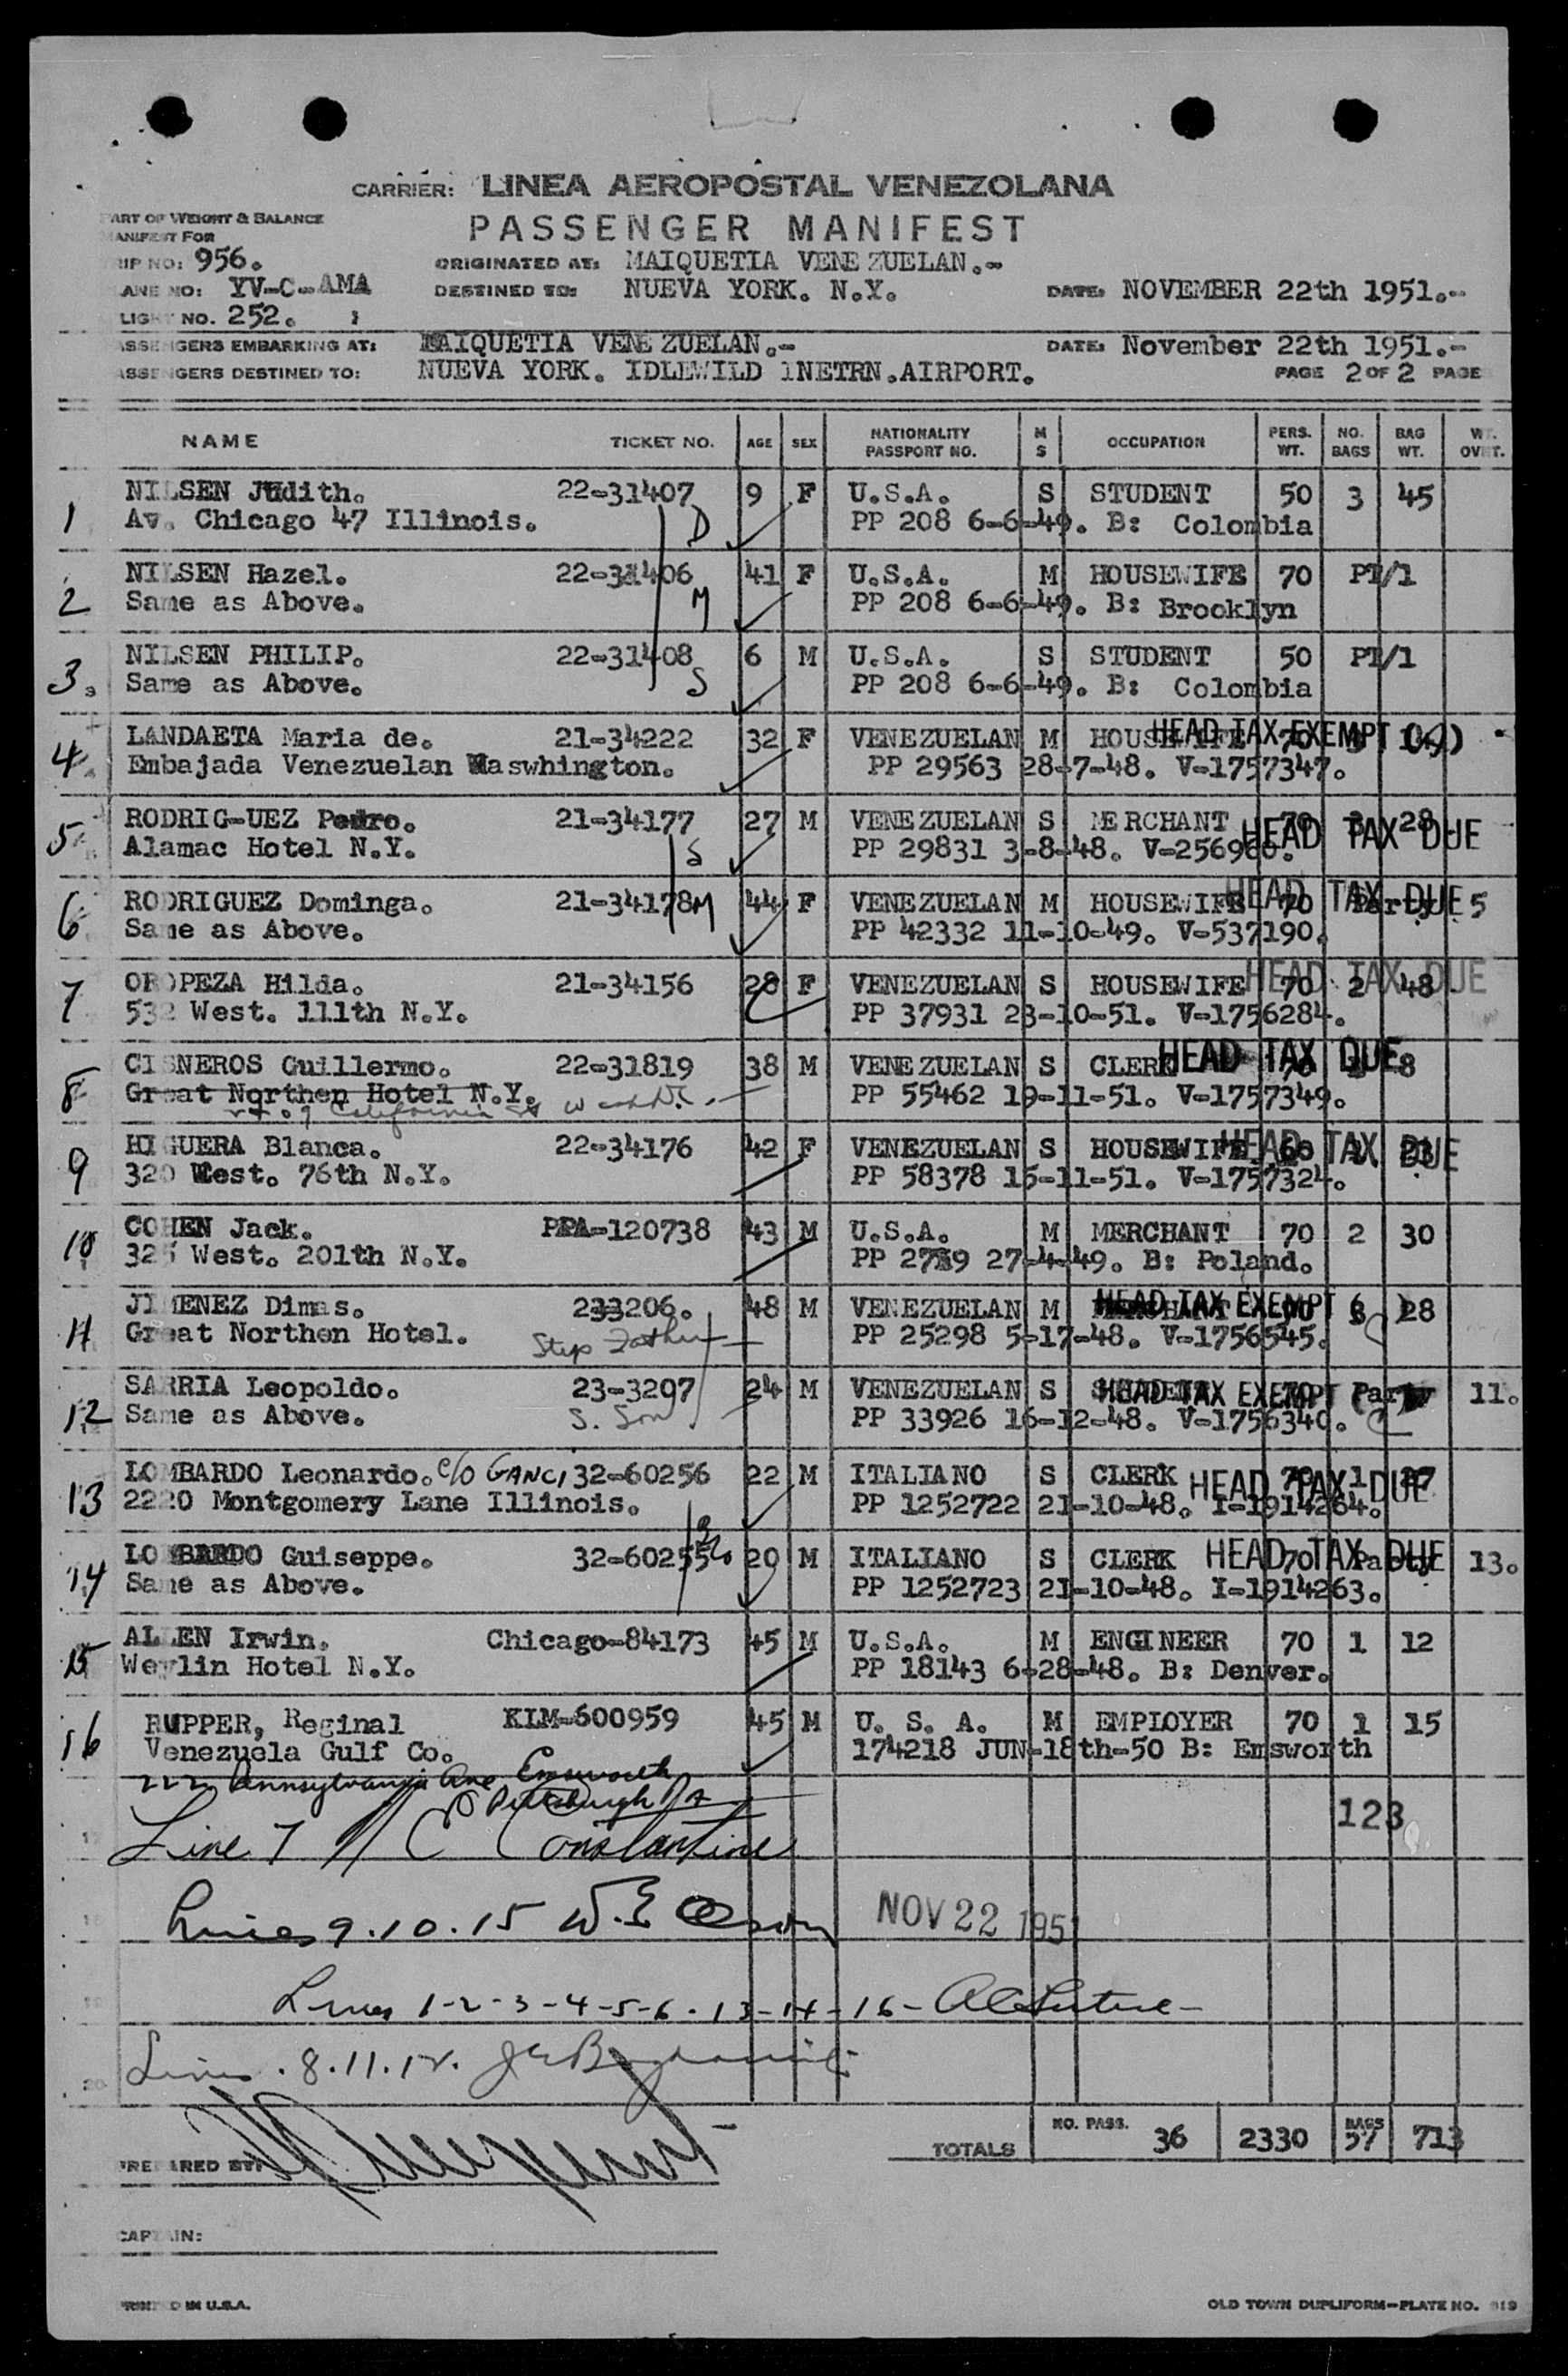 CARRIER: LINEA AEROPOSTAL VENEZOLANA
PART OF WEIGHT & BALANCE
MANIFEST FOR
PASSENGER MANIFEST
TRIP NO: 956.
ORIGINATED AT: MAIQUETIA VENEZUELAN.-
PLANE NO: YV-C-AMA
DESTINED TO: NUEVA YORK. N.Y.
DATE: NOVEMBER 22th 1951.--
FLIGHT NO. 252.
PASSENGERS EMBARKING AT: MAIQUETIA VENEZUELAN.-
DATE: November 22th 1951.-
PASSENGERS DESTINED TO: NUEVA YORK. IDLEWILD INETRN.AIRPORT.
PAGE 2 OF 2 PAGE
NAME TICKET NO. AGE SEX NATIONALITY PASSPORT NO. M S OCCUPATION PERS. WT. NO. BAGS BAG WT. WT. OVRT.
1 NILSEN Judith. 22-31407 9 F U.S.A. S STUDENT 50 3 45
Av. Chicago 47 Illinois. D PP 208 6-6-49. B: Colombia
2 NILSEN Hazel. 22-31406 41 F U.S.A. M HOUSEWIFE 70 PT/1
Same as Above. M PP 208 6-6-49. B: Brooklyn
3. NILSEN PHILIP. 22-31408 6 M U.S.A. S STUDENT 50 PT/1
Same as Above. S PP 208 6-6-49. B: Colombia
4 LANDAETA Maria de. 21-34222 32 F VENEZUELAN M HOUSEWIFE 70 HEAD TAX EXEMPT
Embajada Venezuelan Waswhington. PP 29563 28-7-48. V-1757347.
5 RODRIG-UEZ Pedro. 21-34177 27 M VENEZUELAN S MERCHANT 70 28 HEAD TAX DUE
Alamac Hotel N.Y. S PP 29831 3-8-48. V-256960.
6 RODRIGUEZ Dominga. 21-34178 M 44 F VENEZUELAN M HOUSEWIFE 70 Party 5 HEAD TAX DUE
Same as Above. PP 42332 11-10-49. V-537190.
7 OROPEZA Hilda. 21-34156 28 F VENEZUELAN S HOUSEWIFE 70 2 48 HEAD TAX DUE
532 West. 111th N.Y. PP 37931 23-10-51. V-1756284.
8 CISNEROS Guillermo. 22-31819 38 M VENEZUELAN S CLERK 70 8 HEAD TAX DUE
Great Northen Hotel N.Y. PP 55462 19-11-51. V-1757349.
California St
9 HIGUERA Blanca. 22-34176 42 F VENEZUELAN S HOUSEWIFE 60 23 HEAD TAX DUE
320 West. 76th N.Y. PP 58378 15-11-51. V-1757324.
10 COHEN Jack. PPA-120738 43 M U.S.A. M MERCHANT 70 2 30
325 West. 201th N.Y. PP 2739 27-4-49. B: Poland.
11 JIMENEZ Dimas. 233206. 48 M VENEZUELAN M MERCHANT 28 HEAD TAX EXEMPT
Great Northen Hotel. Step Father PP 25298 5-17-48. V-1756545.
12 SARRIA Leopoldo. 23-3207 24 M VENEZUELAN S STUDENT 70 Party 11. HEAD TAX EXEMPT
Same as Above. S. Son PP 33926 16-12-48. V-1756340.
13 LOMBARDO Leonardo. c/o GANCI 32-60256 22 M ITALIANO S CLERK 70 1 27 HEAD TAX DUE
2220 Montgomery Lane Illinois. PP 1252722 21-10-48. I-1914264.
14 LOMBARDO Guiseppe. 32-60255 20 M ITALIANO S CLERK 70 Party 13. HEAD TAX DUE
Same as Above. PP 1252723 21-10-48. I-1914263.
15 ALLEN Irwin. Chicago-84173 45 M U.S.A. M ENGINEER 70 1 12
Weylin Hotel N.Y. PP 18143 6-28-48. B: Denver.
16 RUPPER, Reginal KLM-600959 45 M U. S. A. M EMPLOYER 70 1 15
Venezuela Gulf Co. 174218 JUN-18th-50 B: Emsworth
222 Pennsylvania Ave Emsworth
Pittsburgh Pa
123
Line 7 H C Constantine
Lines 9.10.15 W.E. Olson
NOV 22 1951
Lines 1-2-3-4-5-6-13-14-16-
Lines . 8.11.12.
TOTALS NO. PASS. 36 2330 BAGS 57 713
PREPARED BY:
CAPTAIN:
PRINTED IN U.S.A.
OLD TOWN DUPLIFORM—PLATE NO. 919